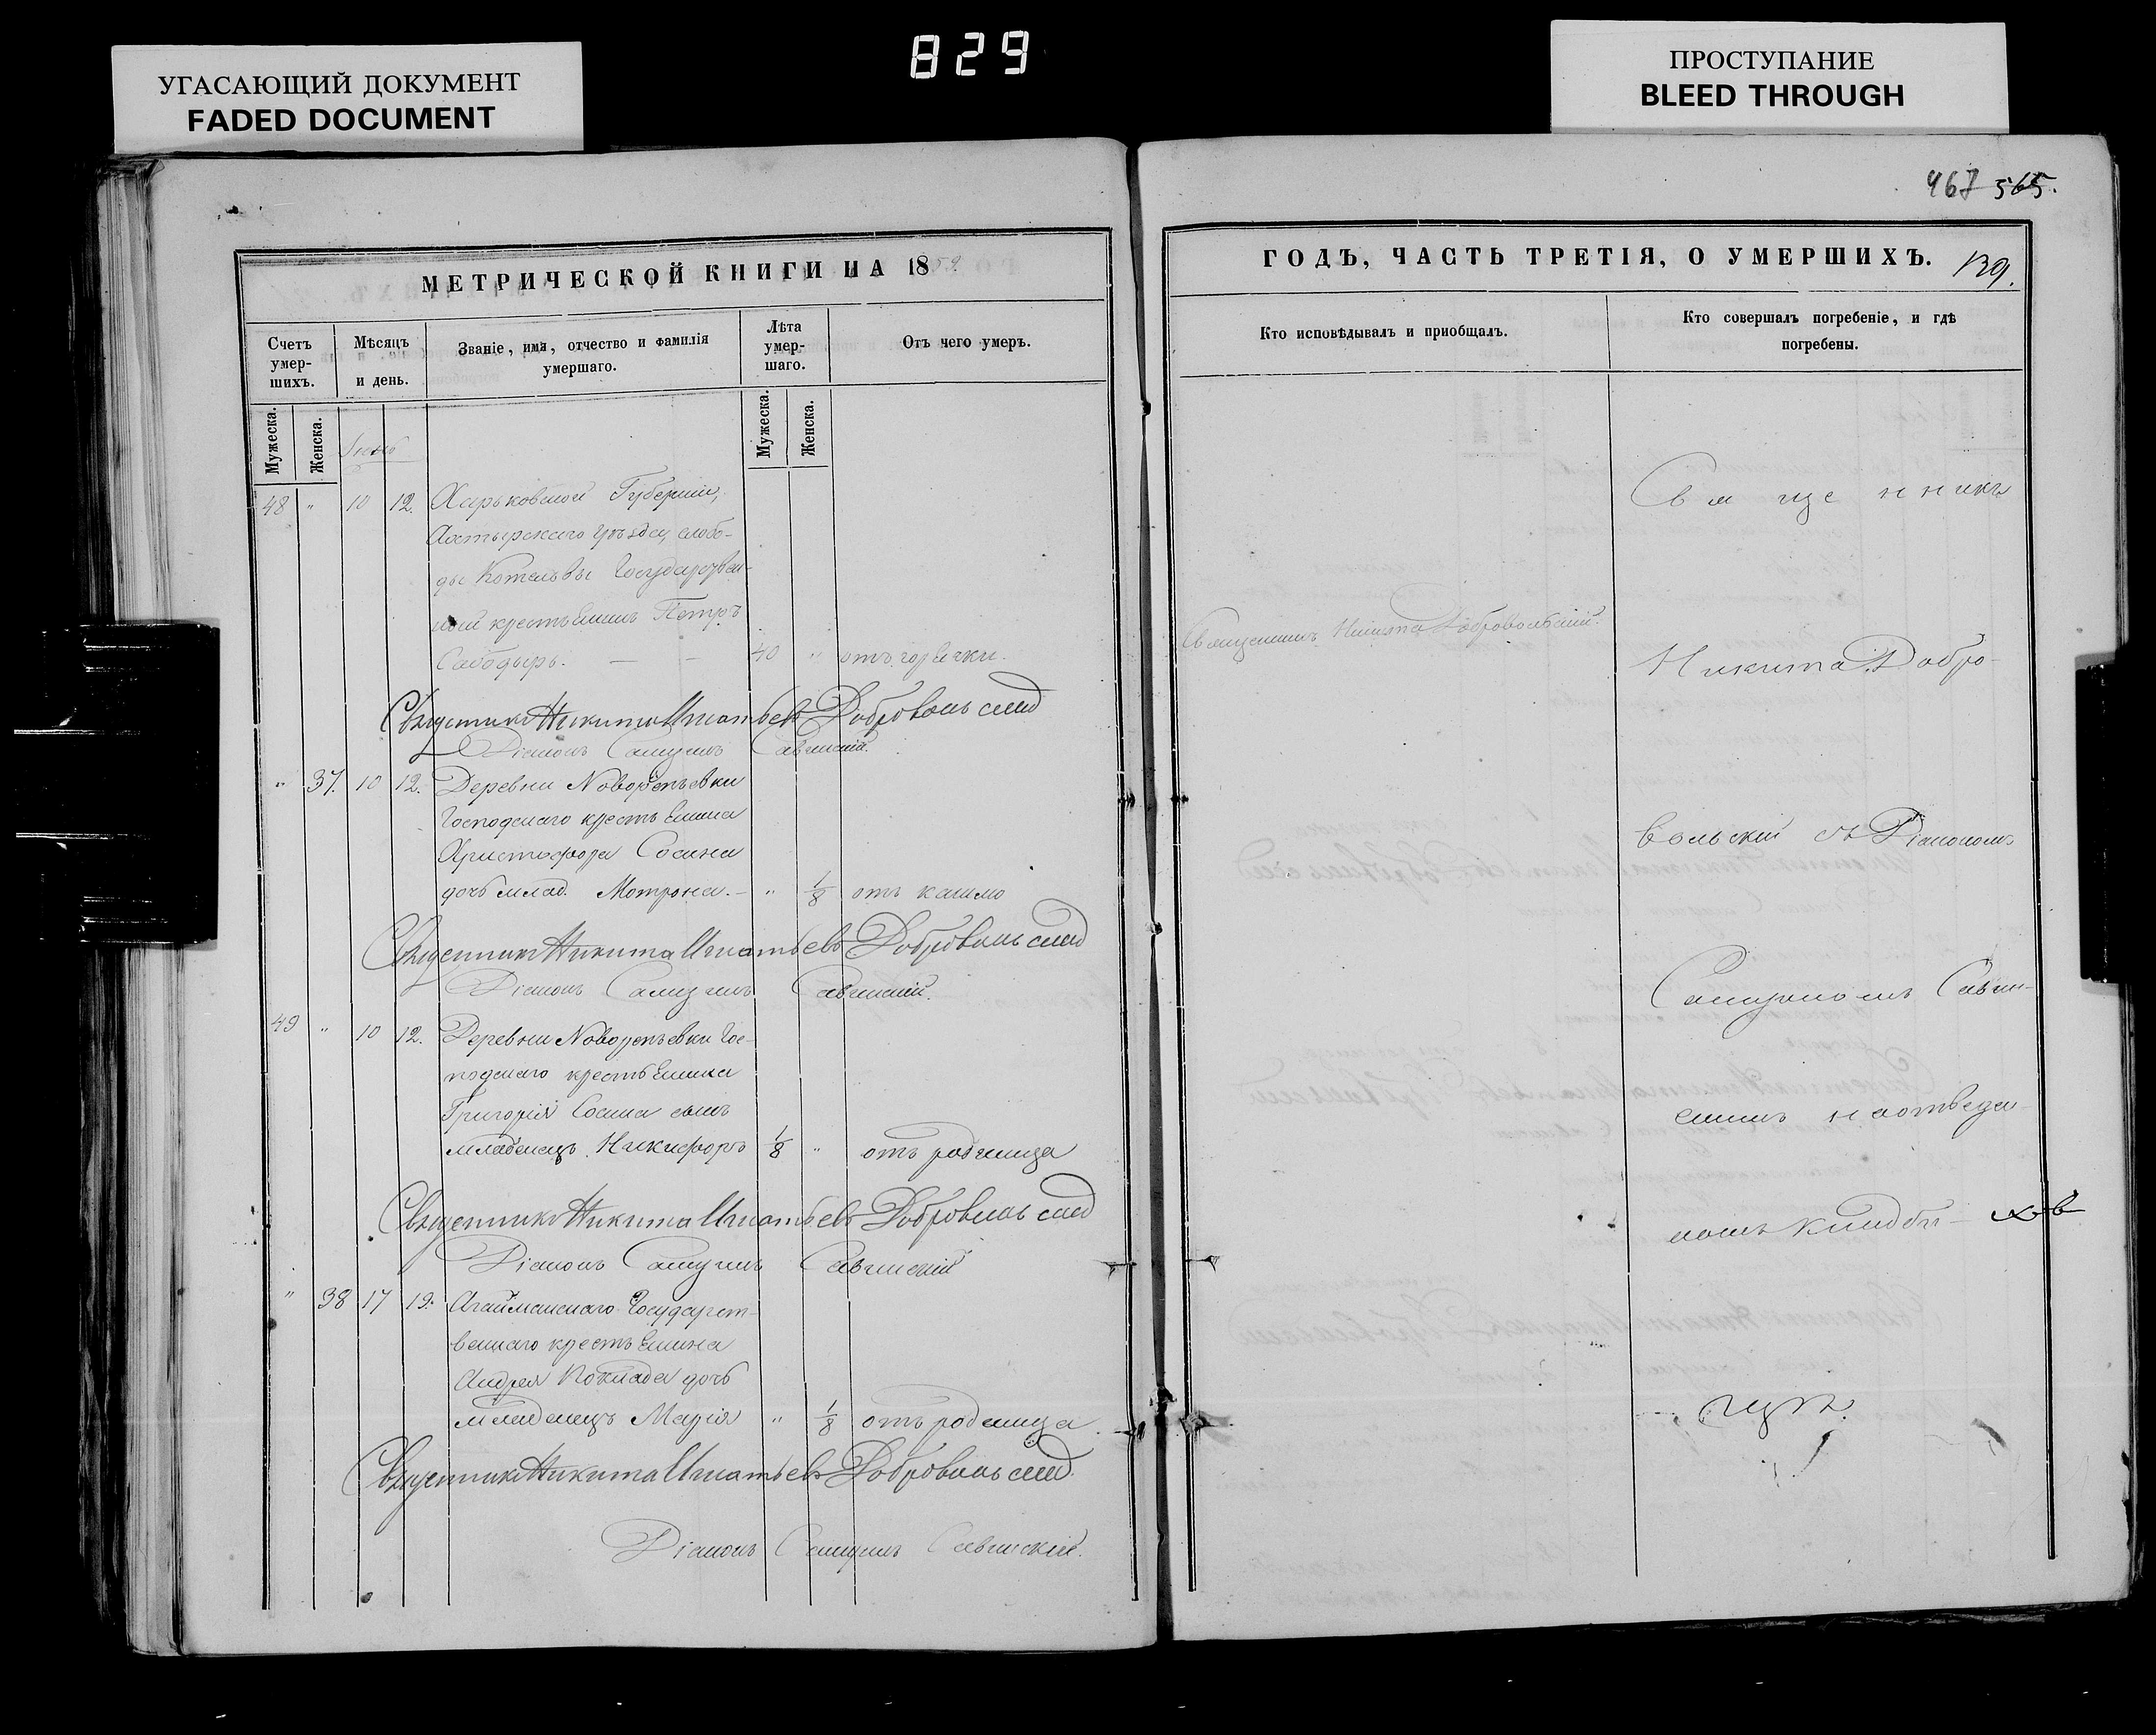 УГАСАЮЩИЙ ДОКУМЕНТ
FADED DOCUMENT
829
ПРОСТУПАНИЕ
BLEED THROUGH
467 565.
МЕТРИЧЕСКОЙ КНИГИ НА 1859
Счетъ умер-шихъ.
Мѣсяцъ и день.
Званіе, имя, отчество и фамилія умершаго.
Лѣта умер-шаго.
Отъ чего умеръ.
Мужеска.
Женска.
Мужеска.
Женска.
48 " 10 12. Харьковской Губерніи,
Ахтырскаго уѣзда, слобо-
ды Котельвы Государствен-
ной крестьянинъ Петръ
40 " отъ горячки.
Священникъ Никита Игнатьевъ Добровольскій
Діаконъ Савинскій.
" 37. 10 12. Деревни
Господскаго крестьянина
Христофора Сосина
дочь млад. Мотрона. " 1/8 отъ кашлю
Священникъ Никита Игнатьевъ Добровольскій
Діаконъ Савинскій.
49 " 10 12. Деревни Гос-
подскаго крестьянина
Григорія Сосина сынъ
младенецъ Никифоръ 1/8 " отъ родимца
Священникъ Никита Игнатьевъ Добровольскій
Діаконъ Савинскій
" 38 17 19. Агайманскаго Государст-
веннаго крестьянина
Андрея дочь
младенецъ Марія " 1/8 отъ родимца
Священникъ Никита Игнатьевъ Добровольскій.
Діаконъ Савинскій.
ГОДЪ, ЧАСТЬ ТРЕТІЯ, О УМЕРШИХЪ. 139.
Кто исповѣдывалъ и пріобщалъ.
Кто совершалъ погребеніе, и гдѣ погребены.
Священникъ Никита Добровольскій.
Священникъ
Никита Добро-
вольскій съ Діакономъ
Савин-
скимъ на отведен-
номъ кладби-
щѣ.